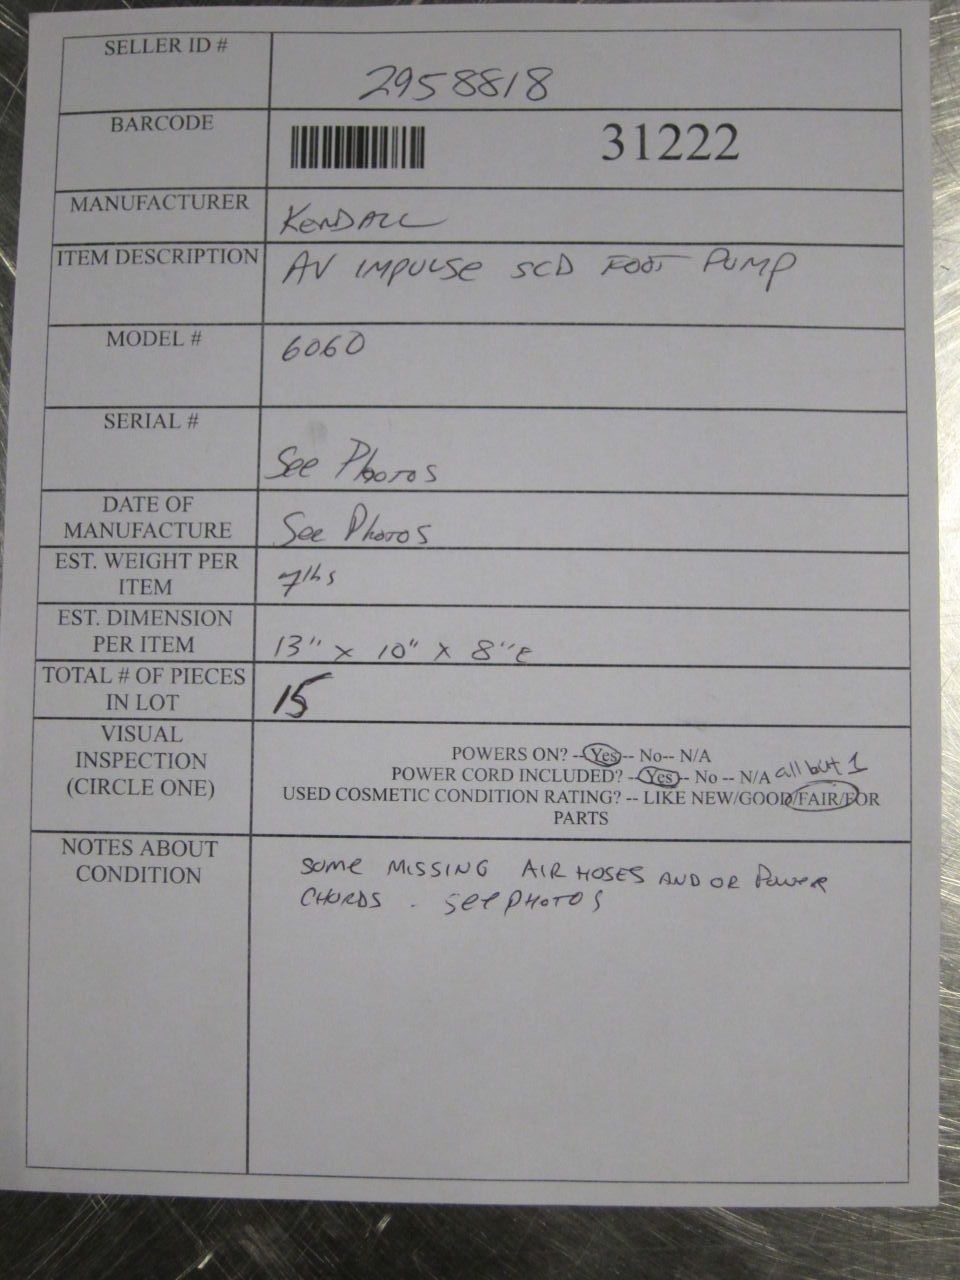 SELLER ID #
2958818
BARCODE
31222
MANUFACTURER
KENDALL
ITEM DESCRIPTION
AV IMPULSE SCD FOOT PUMP
MODEL #
6060
SERIAL #
See Photos
DATE OF
MANUFACTURE
See Photos
EST. WEIGHT PER
ITEM
7lbs
EST. DIMENSION
PER ITEM
13" x 10" x 8"
TOTAL # OF PIECES
IN LOT
15
VISUAL
INSPECTION
(CIRCLE ONE)
POWERS ON? --Yes-- No-- N/A
POWER CORD INCLUDED? --Yes-- No -- N/A all but 1
USED COSMETIC CONDITION RATING? -- LIKE NEW/GOOD/FAIR/FOR
PARTS
NOTES ABOUT
CONDITION
SOME MISSING AIR HOSES AND OR POWER
CHORDS . See PHOTOS